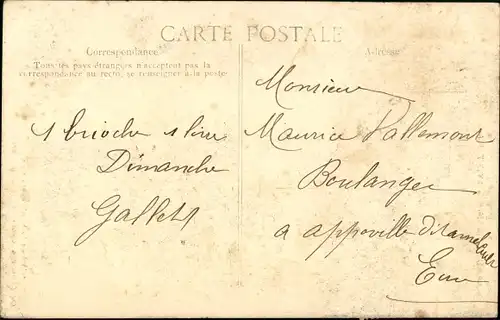 CARTE POSTALE
Correspondance
Tous les pays étrangers n'acceptent pas la
correspondance au recto, se renseigner à la poste
Adresse
1 brioche 1 livre
Dimanche
Gallets
Monsieur
Maurice Vallemont
Boulanger
a appoville dit
Eure